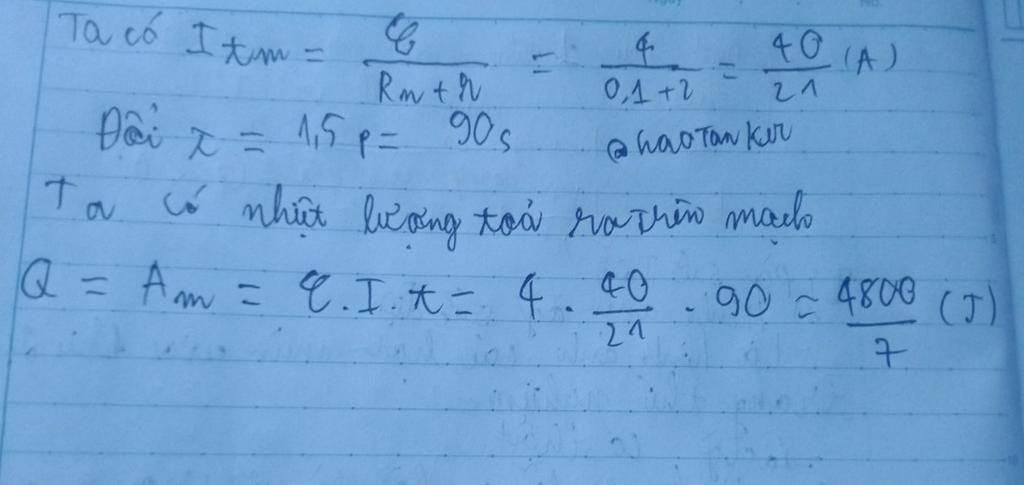 Ta có I tm = ℰ / (Rn + r) = 4 / (0,1+2) = 40 / 21 (A)
Đổi t = 1,5 p = 90s @haoTanKer
Ta có nhiệt lượng toả ra trên mạch
Q = Am = ℰ.I.t = 4 . 40/21 . 90 = 4800/7 (J)